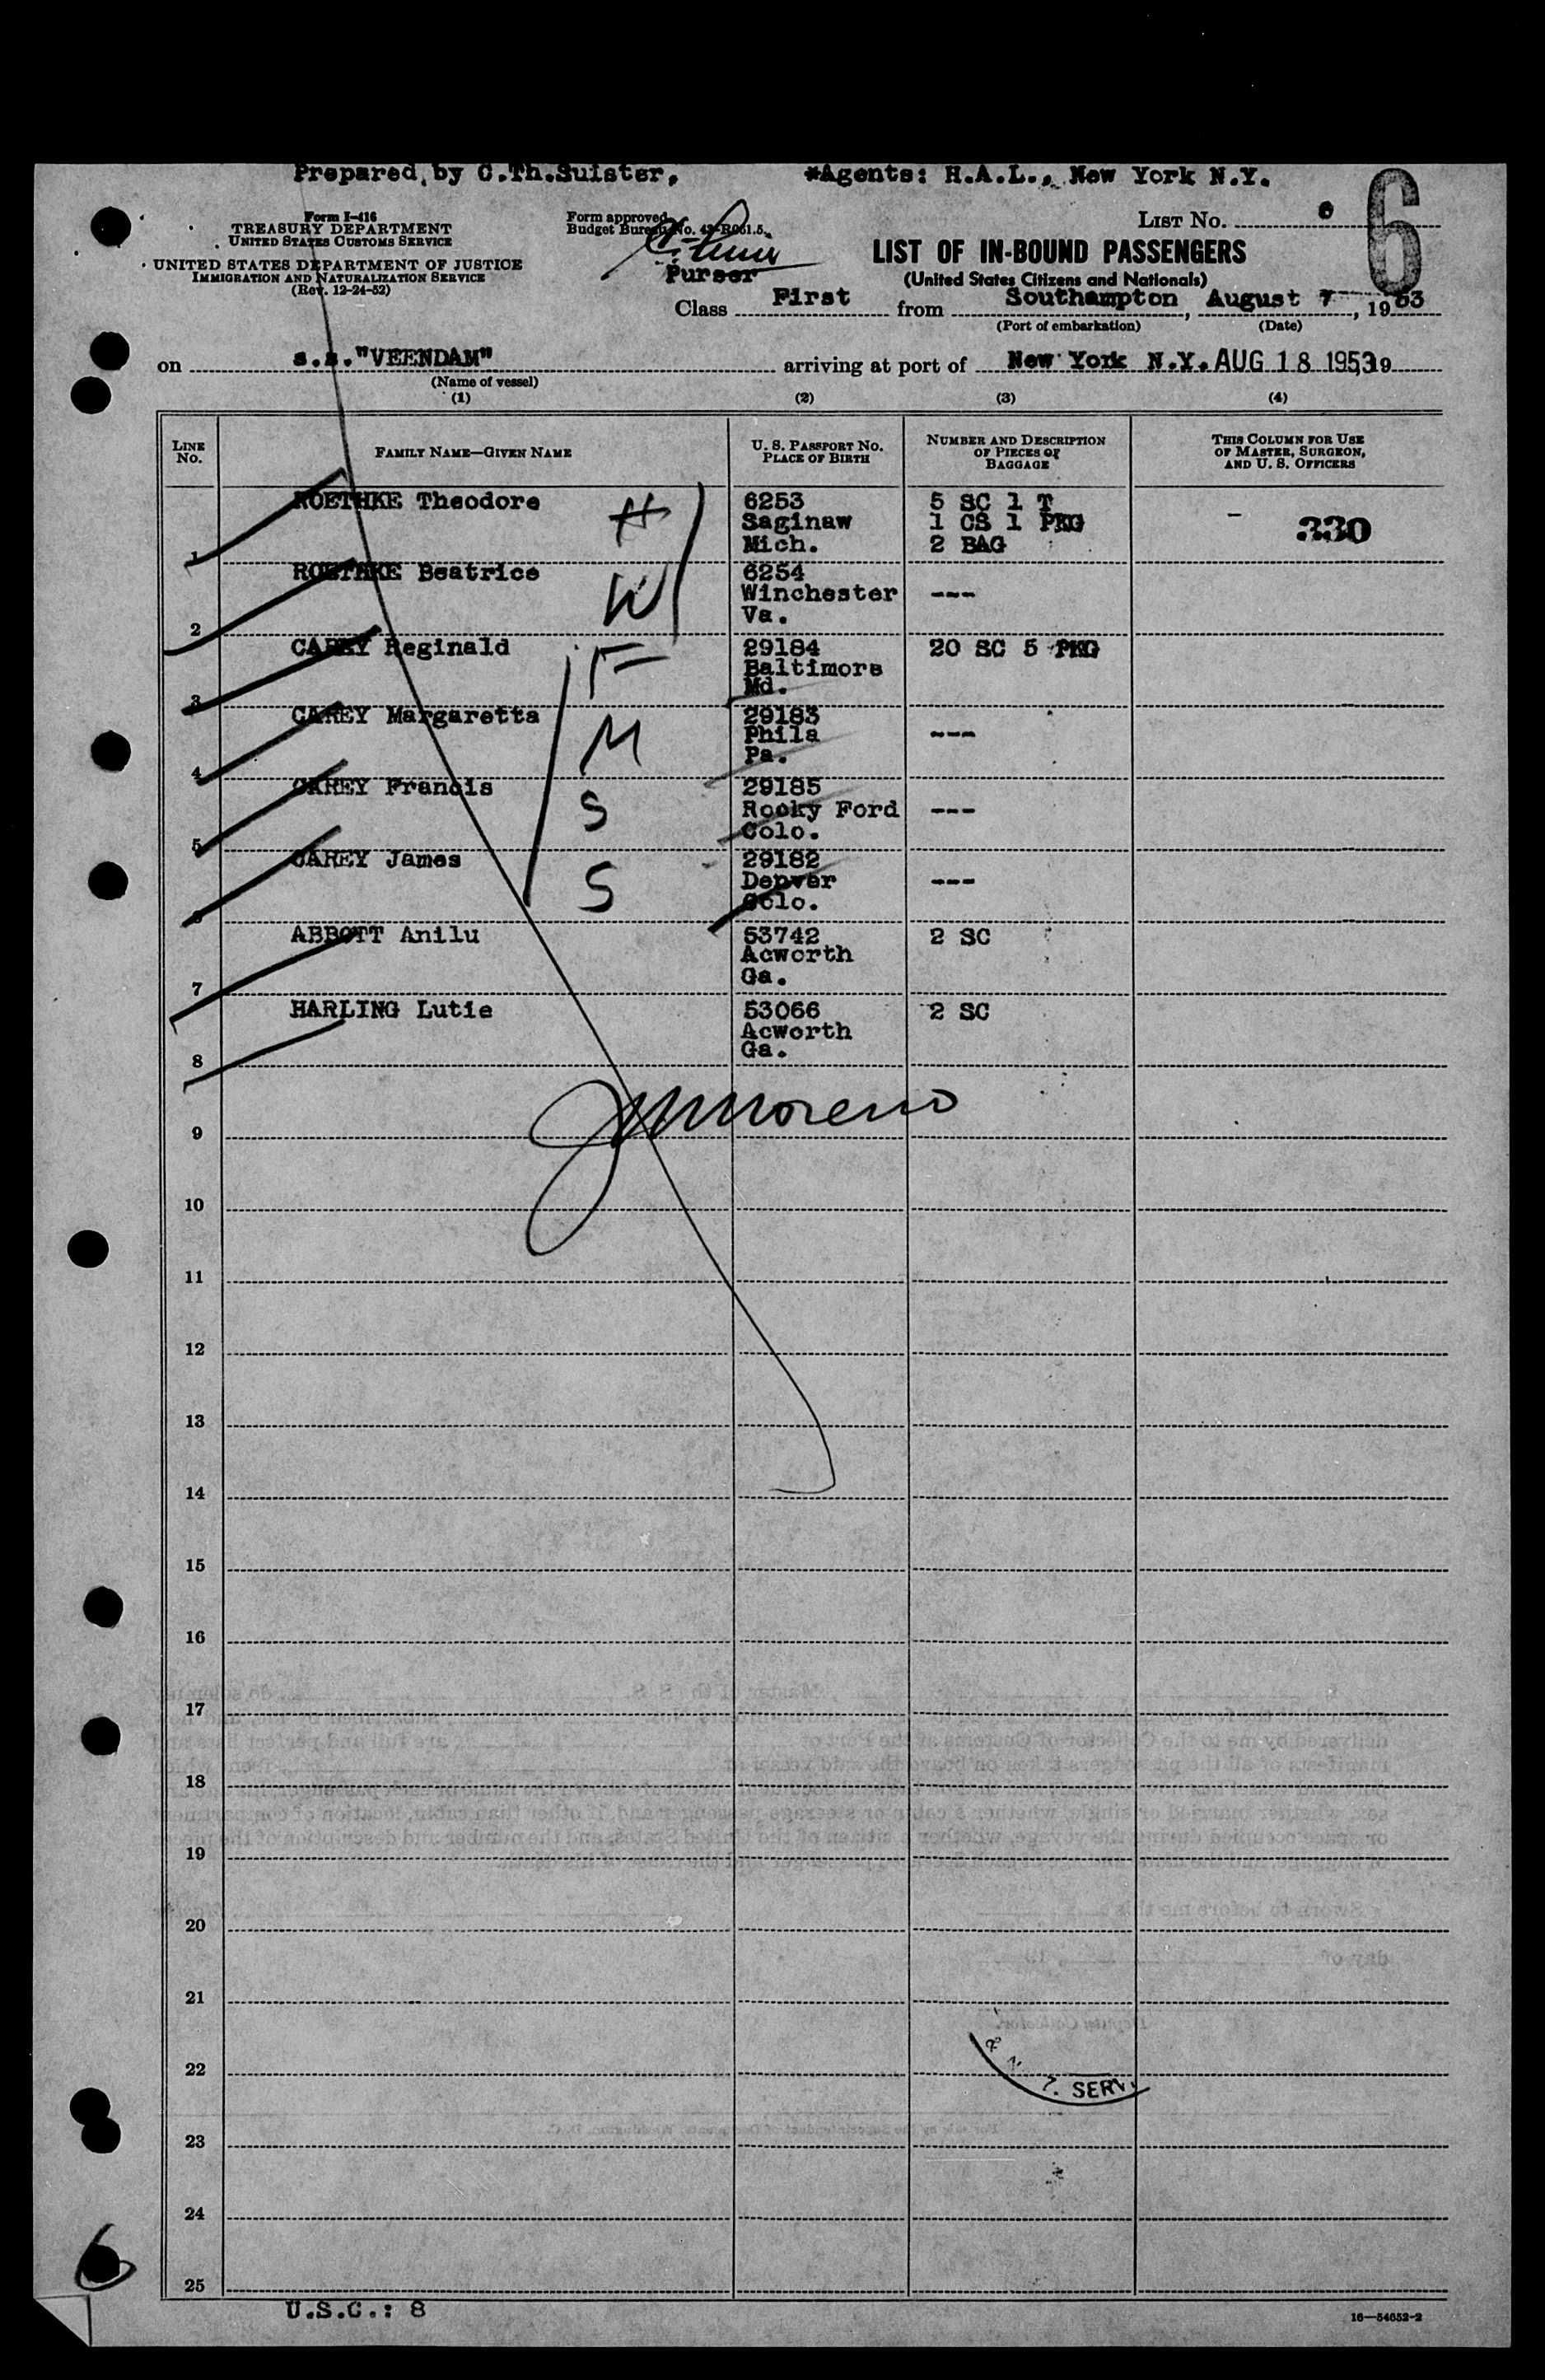 Prepared by C.Th.Suister, *Agents: H.A.L., New York N.Y.
6
Form I-416
TREASURY DEPARTMENT
UNITED STATES CUSTOMS SERVICE
UNITED STATES DEPARTMENT OF JUSTICE
IMMIGRATION AND NATURALIZATION SERVICE
(Rev. 12-24-52)
Form approved.
Budget Bureau No. 43-R061.5.
Purser
LIST NO. 6
LIST OF IN-BOUND PASSENGERS
(United States Citizens and Nationals)
Class First from Southampton, August 7, 1953
(Port of embarkation) (Date)
on s.s."VEENDAM" arriving at port of New York N.Y. AUG 18 1953, 19
(Name of vessel)
(1) (2) (3) (4)
LINE NO. FAMILY NAME—GIVEN NAME U. S. PASSPORT NO. PLACE OF BIRTH NUMBER AND DESCRIPTION OF PIECES OF BAGGAGE THIS COLUMN FOR USE OF MASTER, SURGEON, AND U. S. OFFICERS
1 ROETHKE Theodore H 6253 Saginaw Mich. 5 SC 1 T 1 CS 1 PKG 2 BAG - 330
2 ROETHKE Beatrice W 6254 Winchester Va. ---
3 CAREY Reginald F 29184 Baltimore Md. 20 SC 5 PKG
4 CAREY Margaretta M 29183 Phila Pa. ---
5 CAREY Francis S 29185 Rocky Ford Colo. ---
6 CAREY James S 29182 Denver Colo. ---
7 ABBOTT Anilu 53742 Acworth Ga. 2 SC
8 HARLING Lutie 53066 Acworth Ga. 2 SC
JMMoreno
9
10
11
12
13
14
15
16
17
18
19
20
21
22
& N. Z. SERV.
23
24
25
6
U.S.C.: 8
16—54652-2